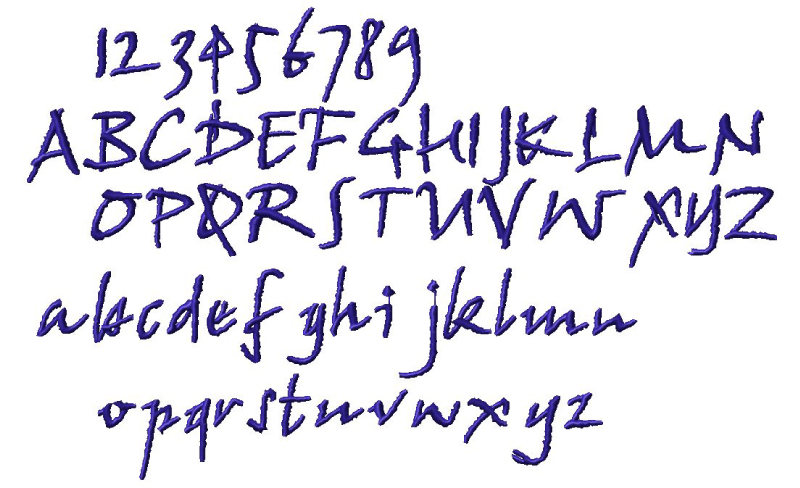 123456789
ABCDEFGHIJKLMN
OPQRSTUVWXYZ
abcdefghijklmn
opqrstuvwxyz